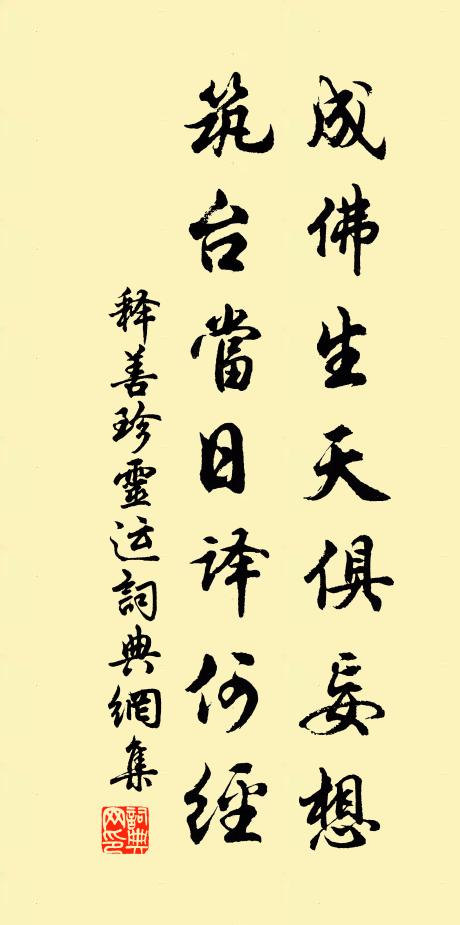 成佛生天俱妄想
筑台當日译何經
释善珍靈运詞典網集
詞典网印